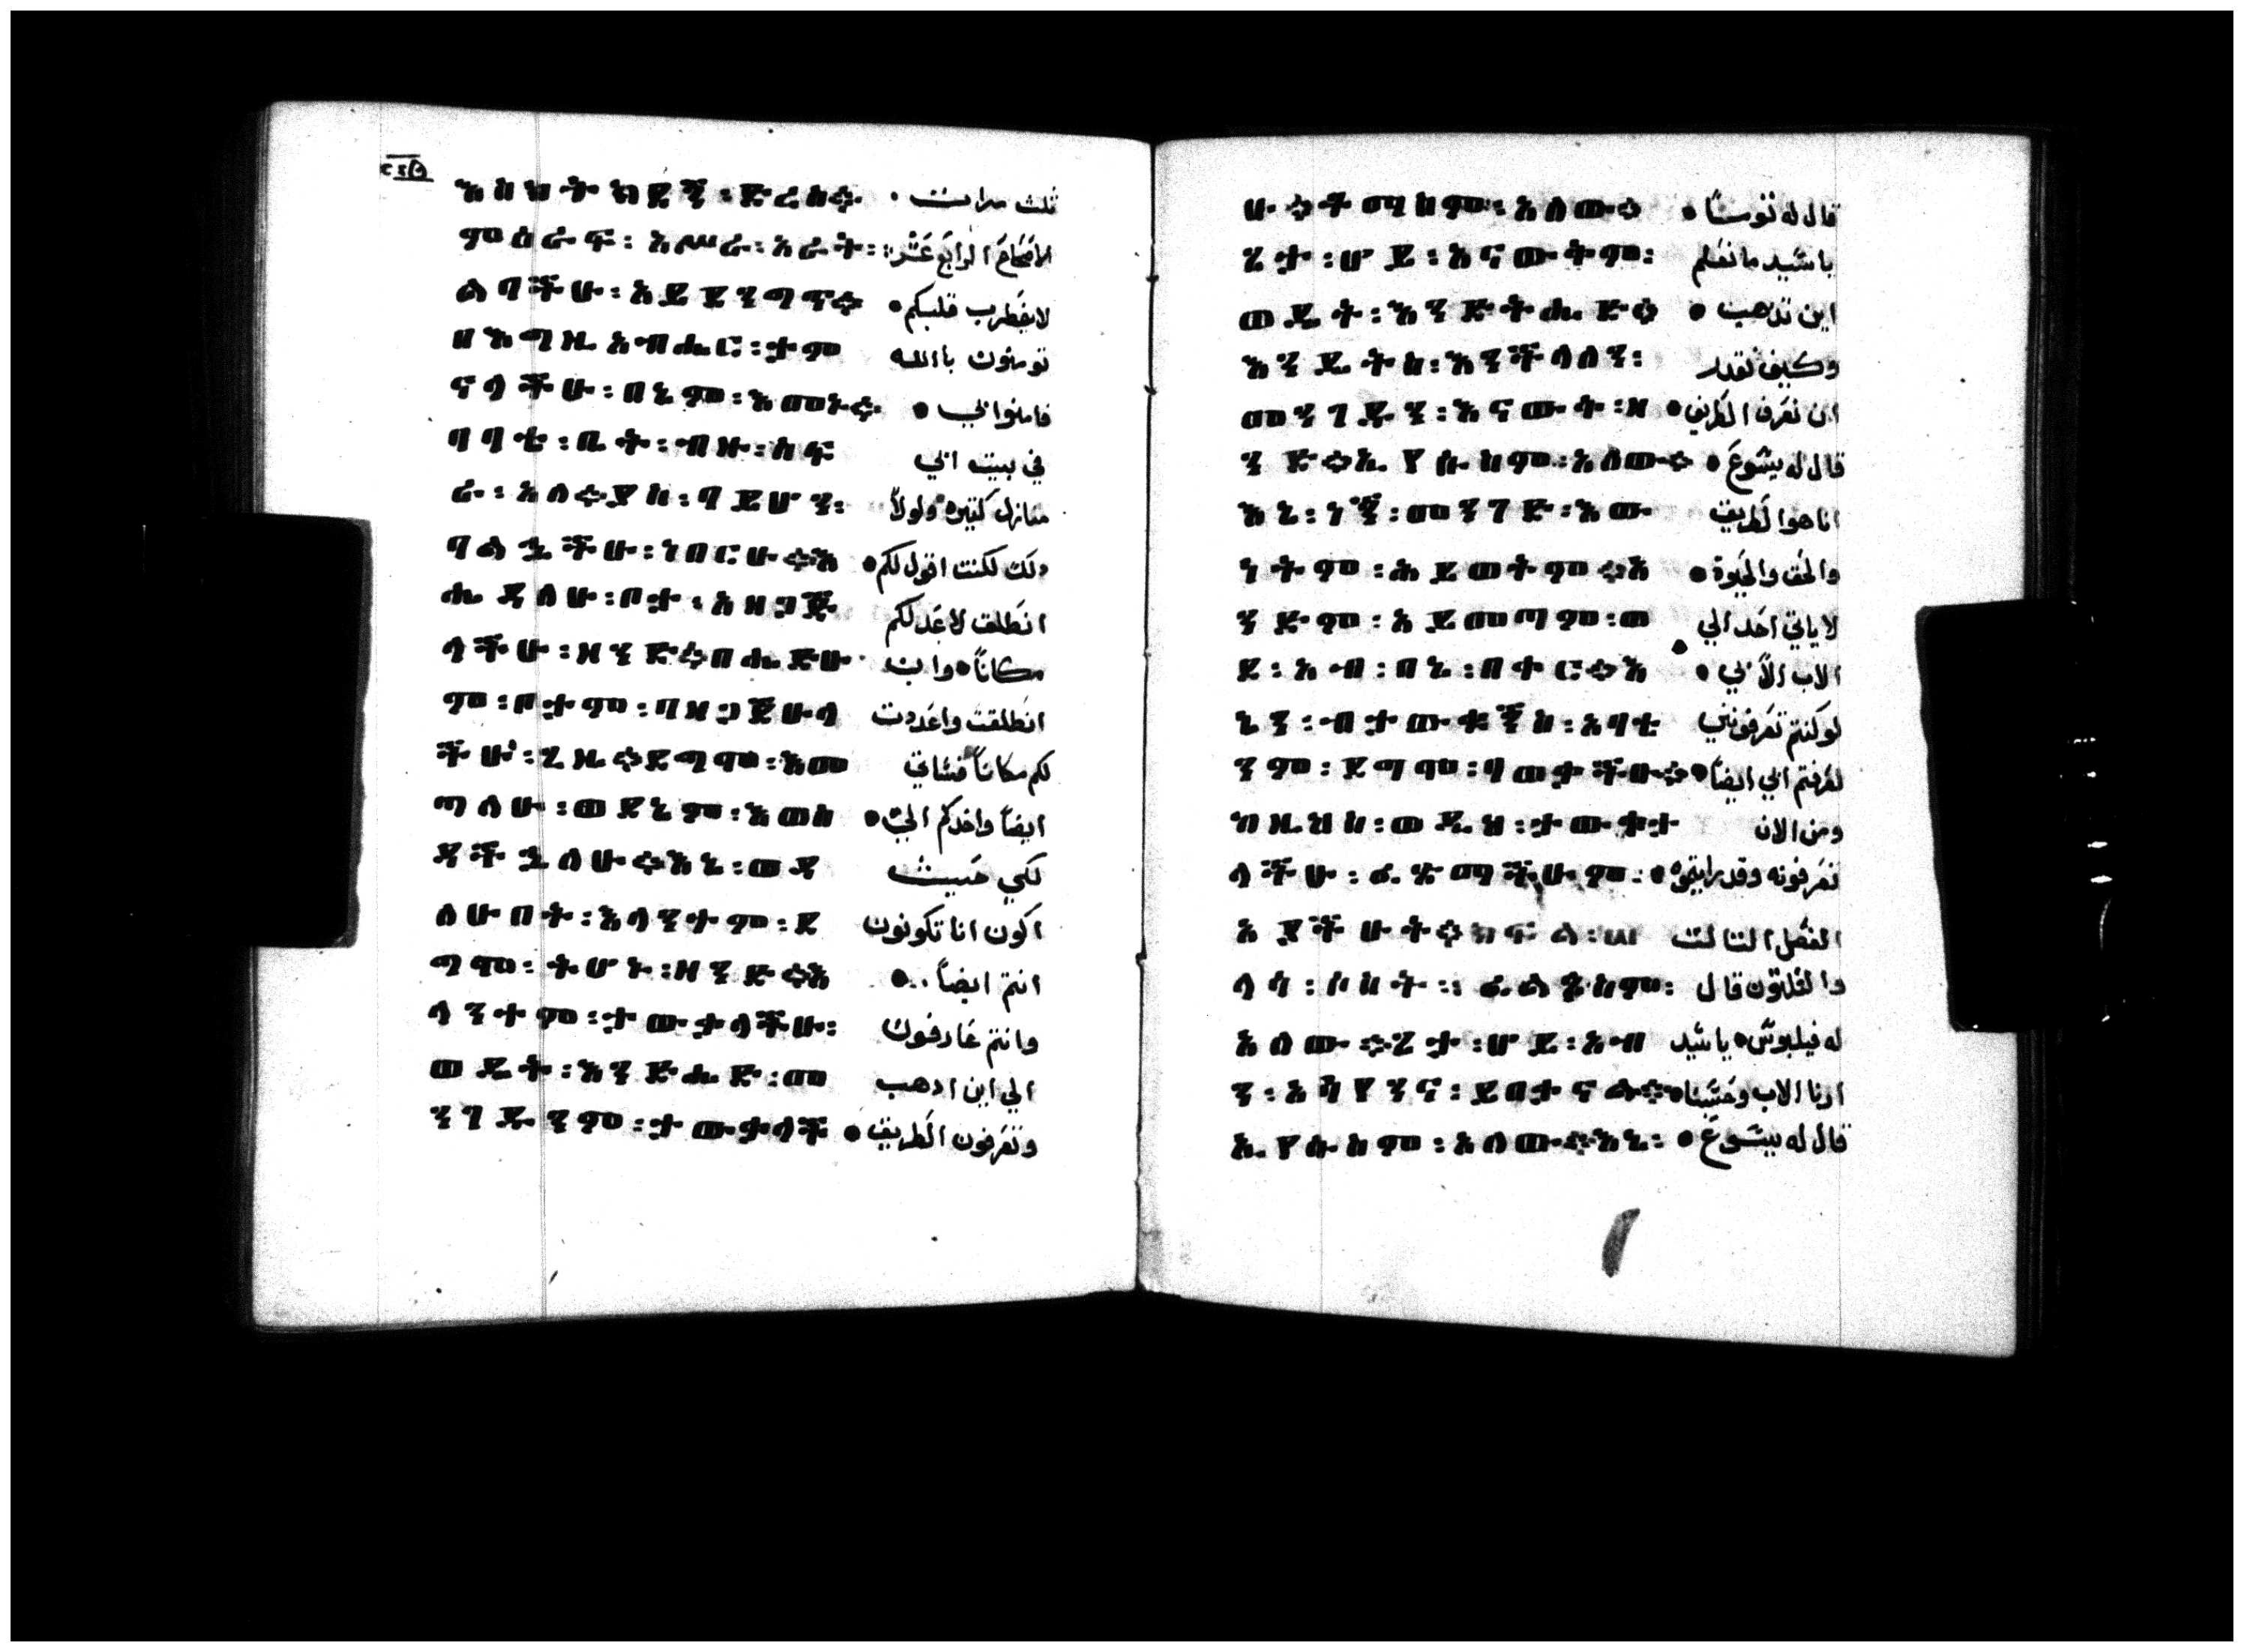 እስክትክደኝ : ድረስ። ثلث مرات .
ምዕራፍ : አሥራ : አራት :: الاصَحَاحَ الرابَع عَشر
ልባችሁ : አይደንግጥ። لا يضطرب قلبكم •
በእግዚአብሔር : ታም تومنون باالله
ናላችሁ : በኔም : እመኑ። فامنوا بي •
ባባቴ : ቤት : ብዙ : ስፍ في بيت ابي
ራ : አለ።ያስ : ባይሆን : منازل كثيره ولولا
ባልኋችሁ : ነበርሁ።እ دلك لكنت اقول لكم •
ሔዳለሁ : ቦታ : አዘጋጅ انطلق لاعَد لكم
ላችሁ : ዘንድ።በሔድሁ مكاناً • وان
ም : ቦታም : በዘጋጀሁላ انطلقت واعَددت
ችሁ : ጊዜ።ደግሞ : እመ لكم مكاناً فساتي
ጣለሁ : ወደኔም : እወስ ايضاً واخدكم اليّ •
ዳችኋለሁ።እኔ : ወዳ لكي حَيث
ለሁበት : እላንተም : ደ اكون انا تكونون
ግሞ : ትሆኑ : ዘንድ።እ انتم ايضاً . •
ላንተም : ታውቃላችሁ : وانتم عَارفون
ወዴት : እንድሔድ : መ الي اين ادهب
ንገዴንም : ታውቃላች وتعَرفون الطريق •
ሁ።ቶማስም : አለው። قال له توما •
ጌታ : ሆይ : አናውቅም : ياسَيد ما نعَلم
ወዴት : እንድትሔድ። اين تدهب •
እንዴትስ : እንችላለን : وكيف نقدر
መንገዴን : እናውቅ : ዘ ان نعَرف الطريق •
ንድ።ኢየሱስም : አለው። قال له يسَوعَ •
እኔ : ነኝ : መንገድ : እው انا هوا لطريق
ነትም : ሕይወትም።እ والحَق والحَيوة •
ንድም : አይመጣም : ወ لا ياتي احَد الي
ደ : አብ : በኔ : በቀር።እ الاب الا بي •
ኔን : ብታውቁኝስ : አባቴ لو كنتم تعَرفونني
ንም : ደግሞ : ባወቃችሁ። لعَرفتم ابي ايضاً •
ካዚህስ : ወዲህ : ታውቃታ ومن الان
ላችሁ : ፈጽማችሁም : تعَرفونه وقد رايتموه •
አያችሁት።ክፍል : ሠ الفصَل التالت
ላሳ : ሶስት :: ፊልጶስም : والتلتون قال
አለው።ጌታ : ሆይ : አብ له فيلبوسَ • ياسَيد
ን : አሳየንና : ይበቃናል። ارنا الاب وحَسَبنا •
ኢየሱስም : አለው።እኔ : قال له يسَوعَ •